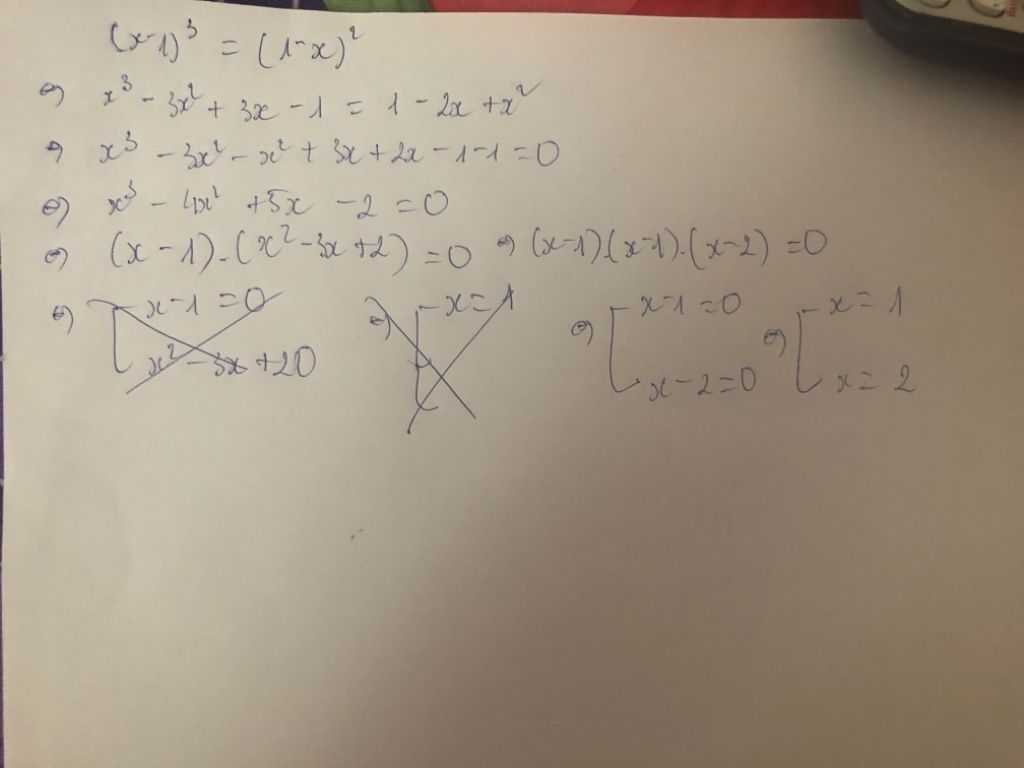 (x-1)³ = (1-x)²
⇔ x³ - 3x² + 3x - 1 = 1 - 2x + x²
⇔ x³ - 3x² - x² + 3x + 2x - 1 - 1 = 0
⇔ x³ - 4x² + 5x - 2 = 0
⇔ (x - 1).(x² - 3x + 2) = 0 ⇔ (x-1)(x-1).(x-2) = 0
⇔ [ x-1 = 0 ⇔ [ x = 1 ⇔ [ x-1 = 0 ⇔ [ x = 1
x² - 3x + 20 x - 2 = 0 x = 2